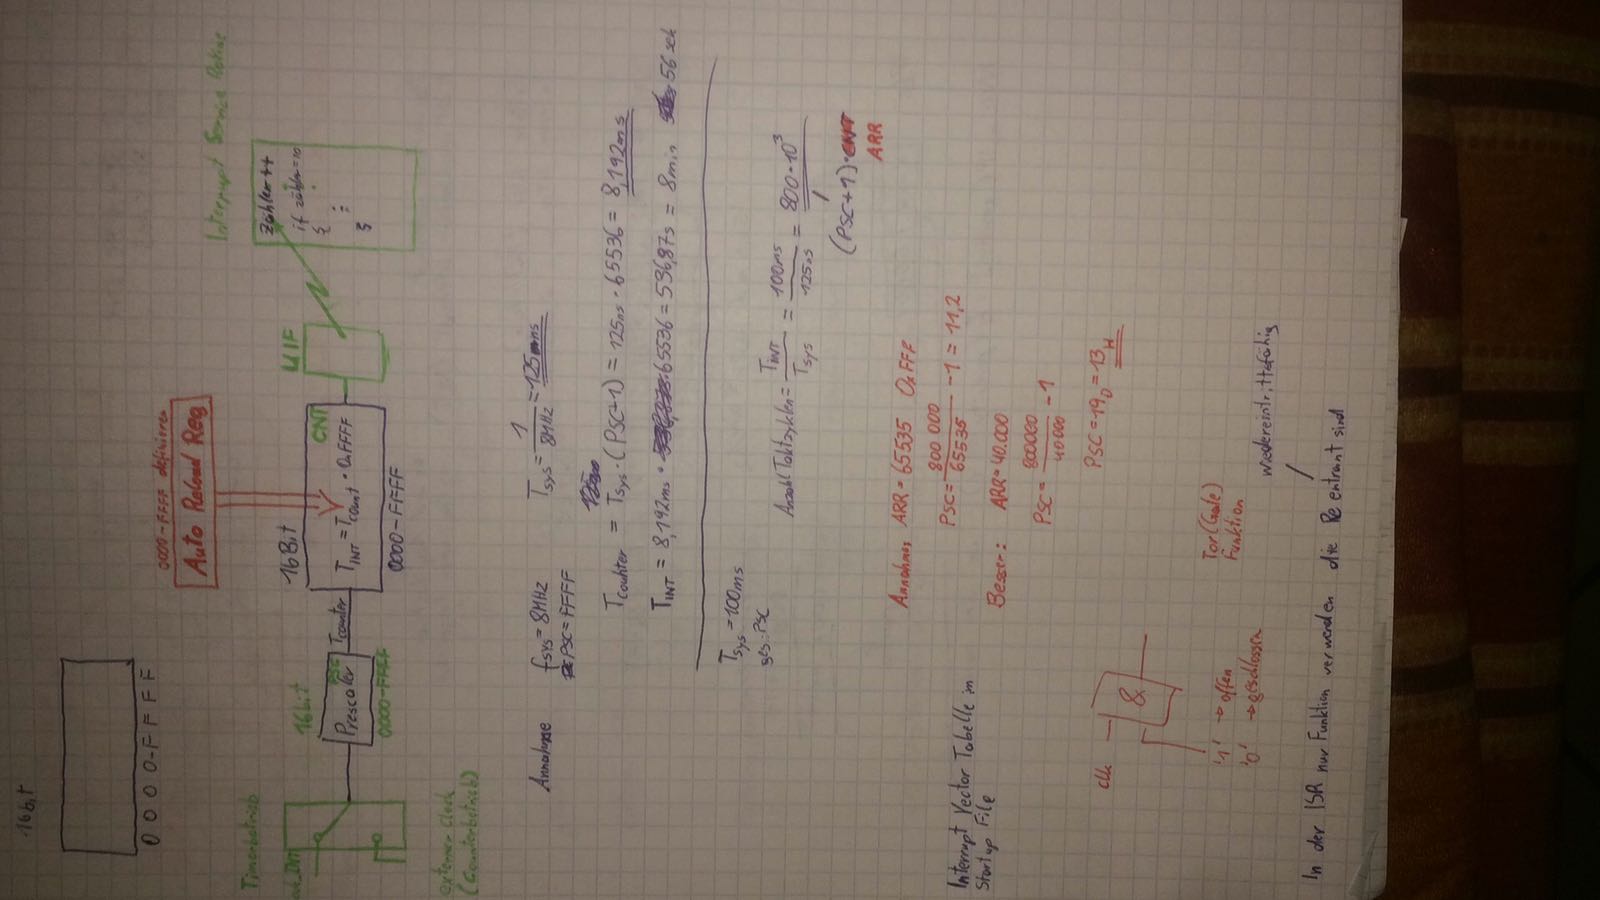 16bit
0 0 0 0-F F F F
0000-FFFF definieren
Auto Reload Reg
Interrupt Service Rotine
Timerbetrieb
16bit
16Bit
UIF
Zähler++
if zähler=10
{
}
PSC
Prescaler
Tcounter
CNT
TINT = Tcount · 0xFFFF
0000-FFFF
0000-FFFF
externer Clock
(Counterbetrieb)
Annahme fsys = 8MHz Tsys = 1/8MHz = 125ns
PSC = FFFF
Tcounter = Tsys · (PSC+1) = 125ns · 65536 = 8,192ms
TINT = 8,192ms · 65536 = 536,87s = 8min 56sek
Tsys = 100ms
ges: PSC
Anzahl Taktzyklen = TINT/Tsys = 100ms/125ns = 800·10³
(PSC+1)·CNT
ARR
Annahme ARR = 65535 0xFFF
PSC = 800 000/65535 -1 = 11,2
Interrupt Vector Tabelle im
Startup File
Besser: ARR=40.000
PSC = 800000/40000 -1
PSC = 19D = 13H
clk
&
'1' → offen
'0' → geschlossen
Tor(Gate)
Funktion
wiedereintrittsfähig
In der ISR nur Funktion verwenden die Re entrant sind